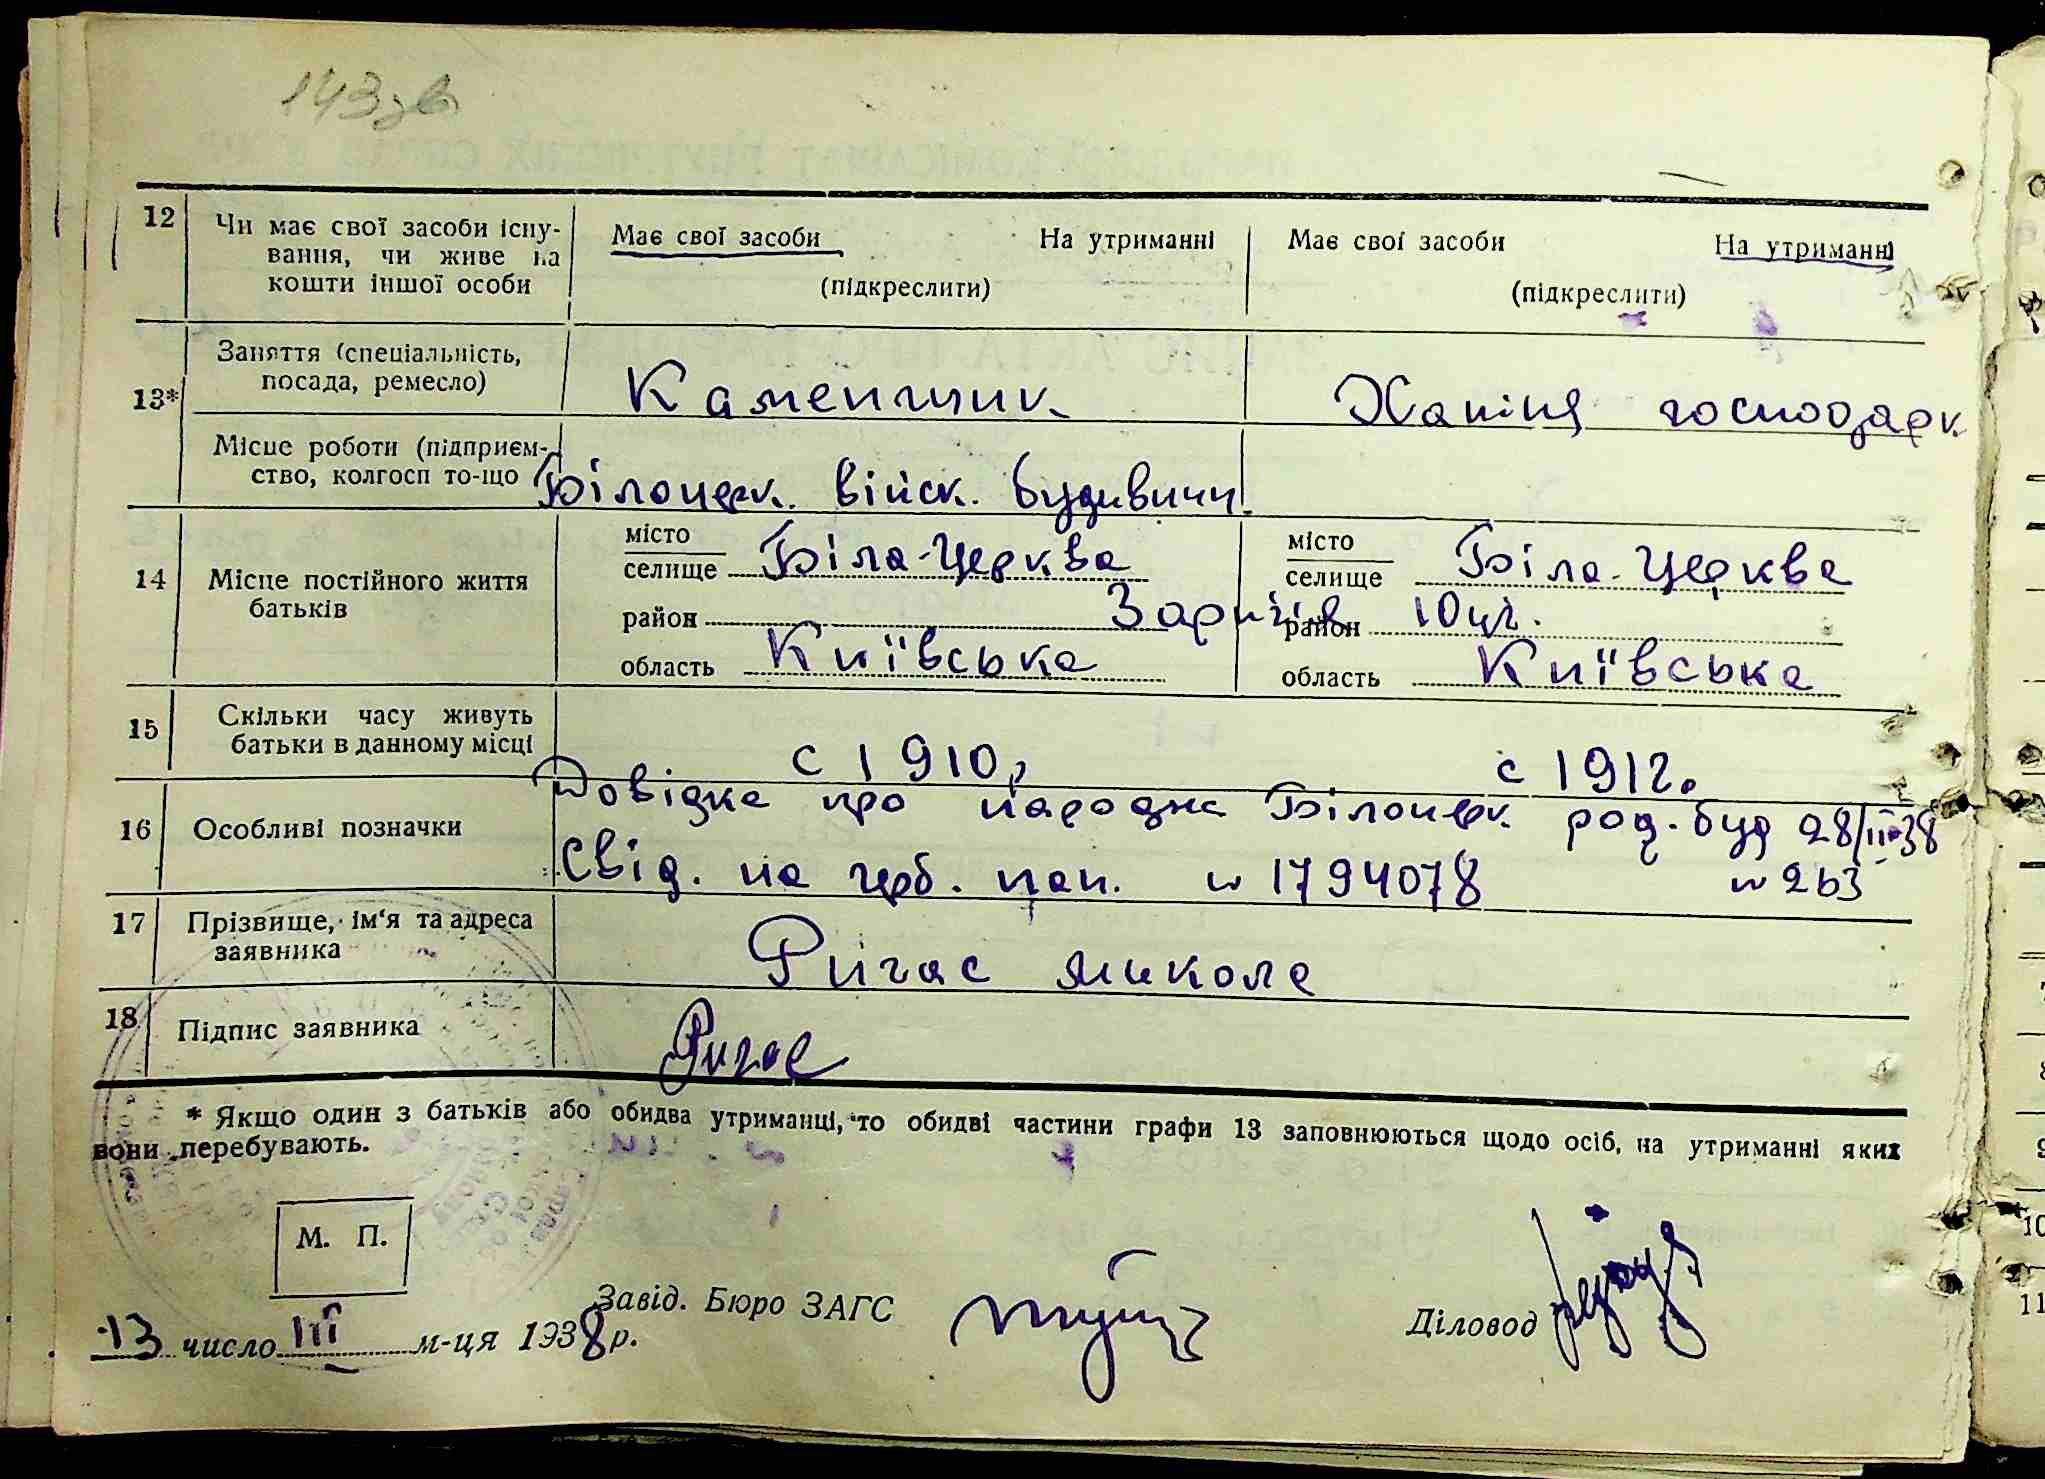 143 зв
12 Чи має свої засоби існу-
вання, чи живе на
кошти іншої особи
Має свої засоби На утриманні
(підкреслити)
Має свої засоби На утриманні
(підкреслити)
13*
Заняття (спеціальність,
посада, ремесло)
Каменщик
Хатіня господарк
Місце роботи (підприєм-
ство, колгосп то-що
Білоцерк. військ. будивничи
14 Місце постійного життя
батьків
місто
селище Біла-Церква
район
область Київська
місто
селище Біла-Церква
район
область Київська
Зарічів 10
15 Скільки часу живуть
батьки в данному місці
с 1910 р
с 191 г.
16 Особливі позначки
Довідка про народж Білоцерк род. буд 28/II-38
Свід. на герб. пап. № 1794078 № 263
17 Прізвище, ім'я та адреса
заявника
Ригас Микола
18 Підпис заявника
Ригас
* Якщо один з батьків або обидва утриманці, то обидві частини графи 13 заповнюються щодо осіб, на утриманні яких
вони перебувають.
М. П.
Завід. Бюро ЗАГС
Діловод
13 число III м-ця 1938 р.